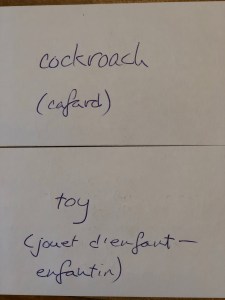 cockroach
(cafard)
toy
(jouet d'enfant —
enfantin)